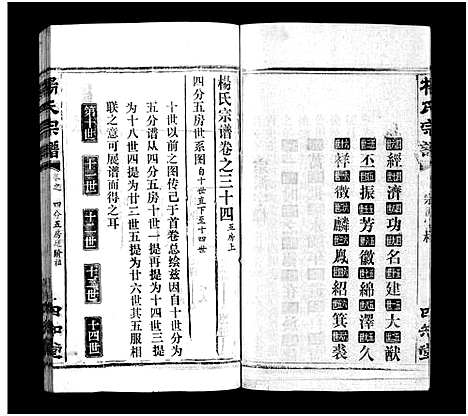 楊氏宗譜
經濟功名建大猷
丕振芳徽綿澤久
祥徵麟鳳紹箕裘
四知堂
楊氏宗譜卷之三十四 五房上
四分五房世系图自十世直下至十四世
十世以前之图传己于首卷总绘兹因自十世分为
四分谱从四分五房十世一提再提为十四世三提
为十八世四提为廿二世五提为廿六世其五服相
联之意可展谱而得之耳
第十世
十一世
十二世
十三世
十四世
楊氏宗譜
四分五房
四知堂